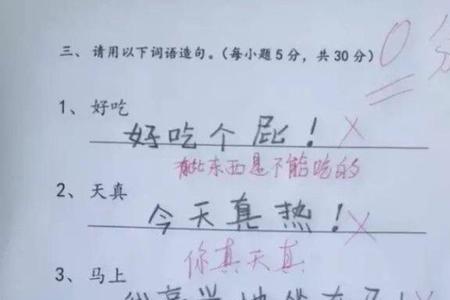 三、请用以下词语造句。(每小题5分,共30分) 0分
1、好吃
好吃个屁!
有些东西是不能吃的
2、天真
今天真热!
你真天真
3、马上